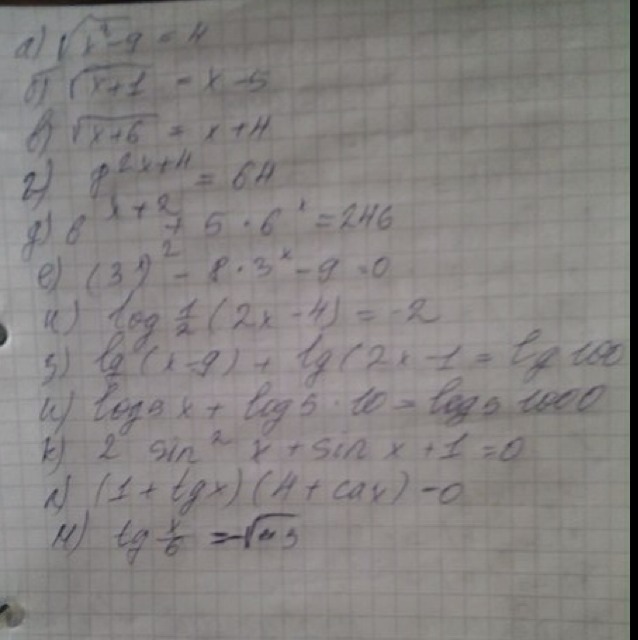 а) √x²-9 = 4
б) √x+1 = x-5
в) √x+6 = x+4
г) 8^2x+4 = 64
д) 6^x+2 + 5·6^x = 246
е) (3^x)² - 8·3^x - 9 = 0
и) log 1/2 (2x-4) = -2
з) lg (x-9) + lg(2x-1 = lg 100
и) log5 x + log5·10 = log5 1000
к) 2 sin² x + sin x + 1 = 0
л) (1 + tgx) (4 + cosx) - 0
м) tg x/6 = -√3